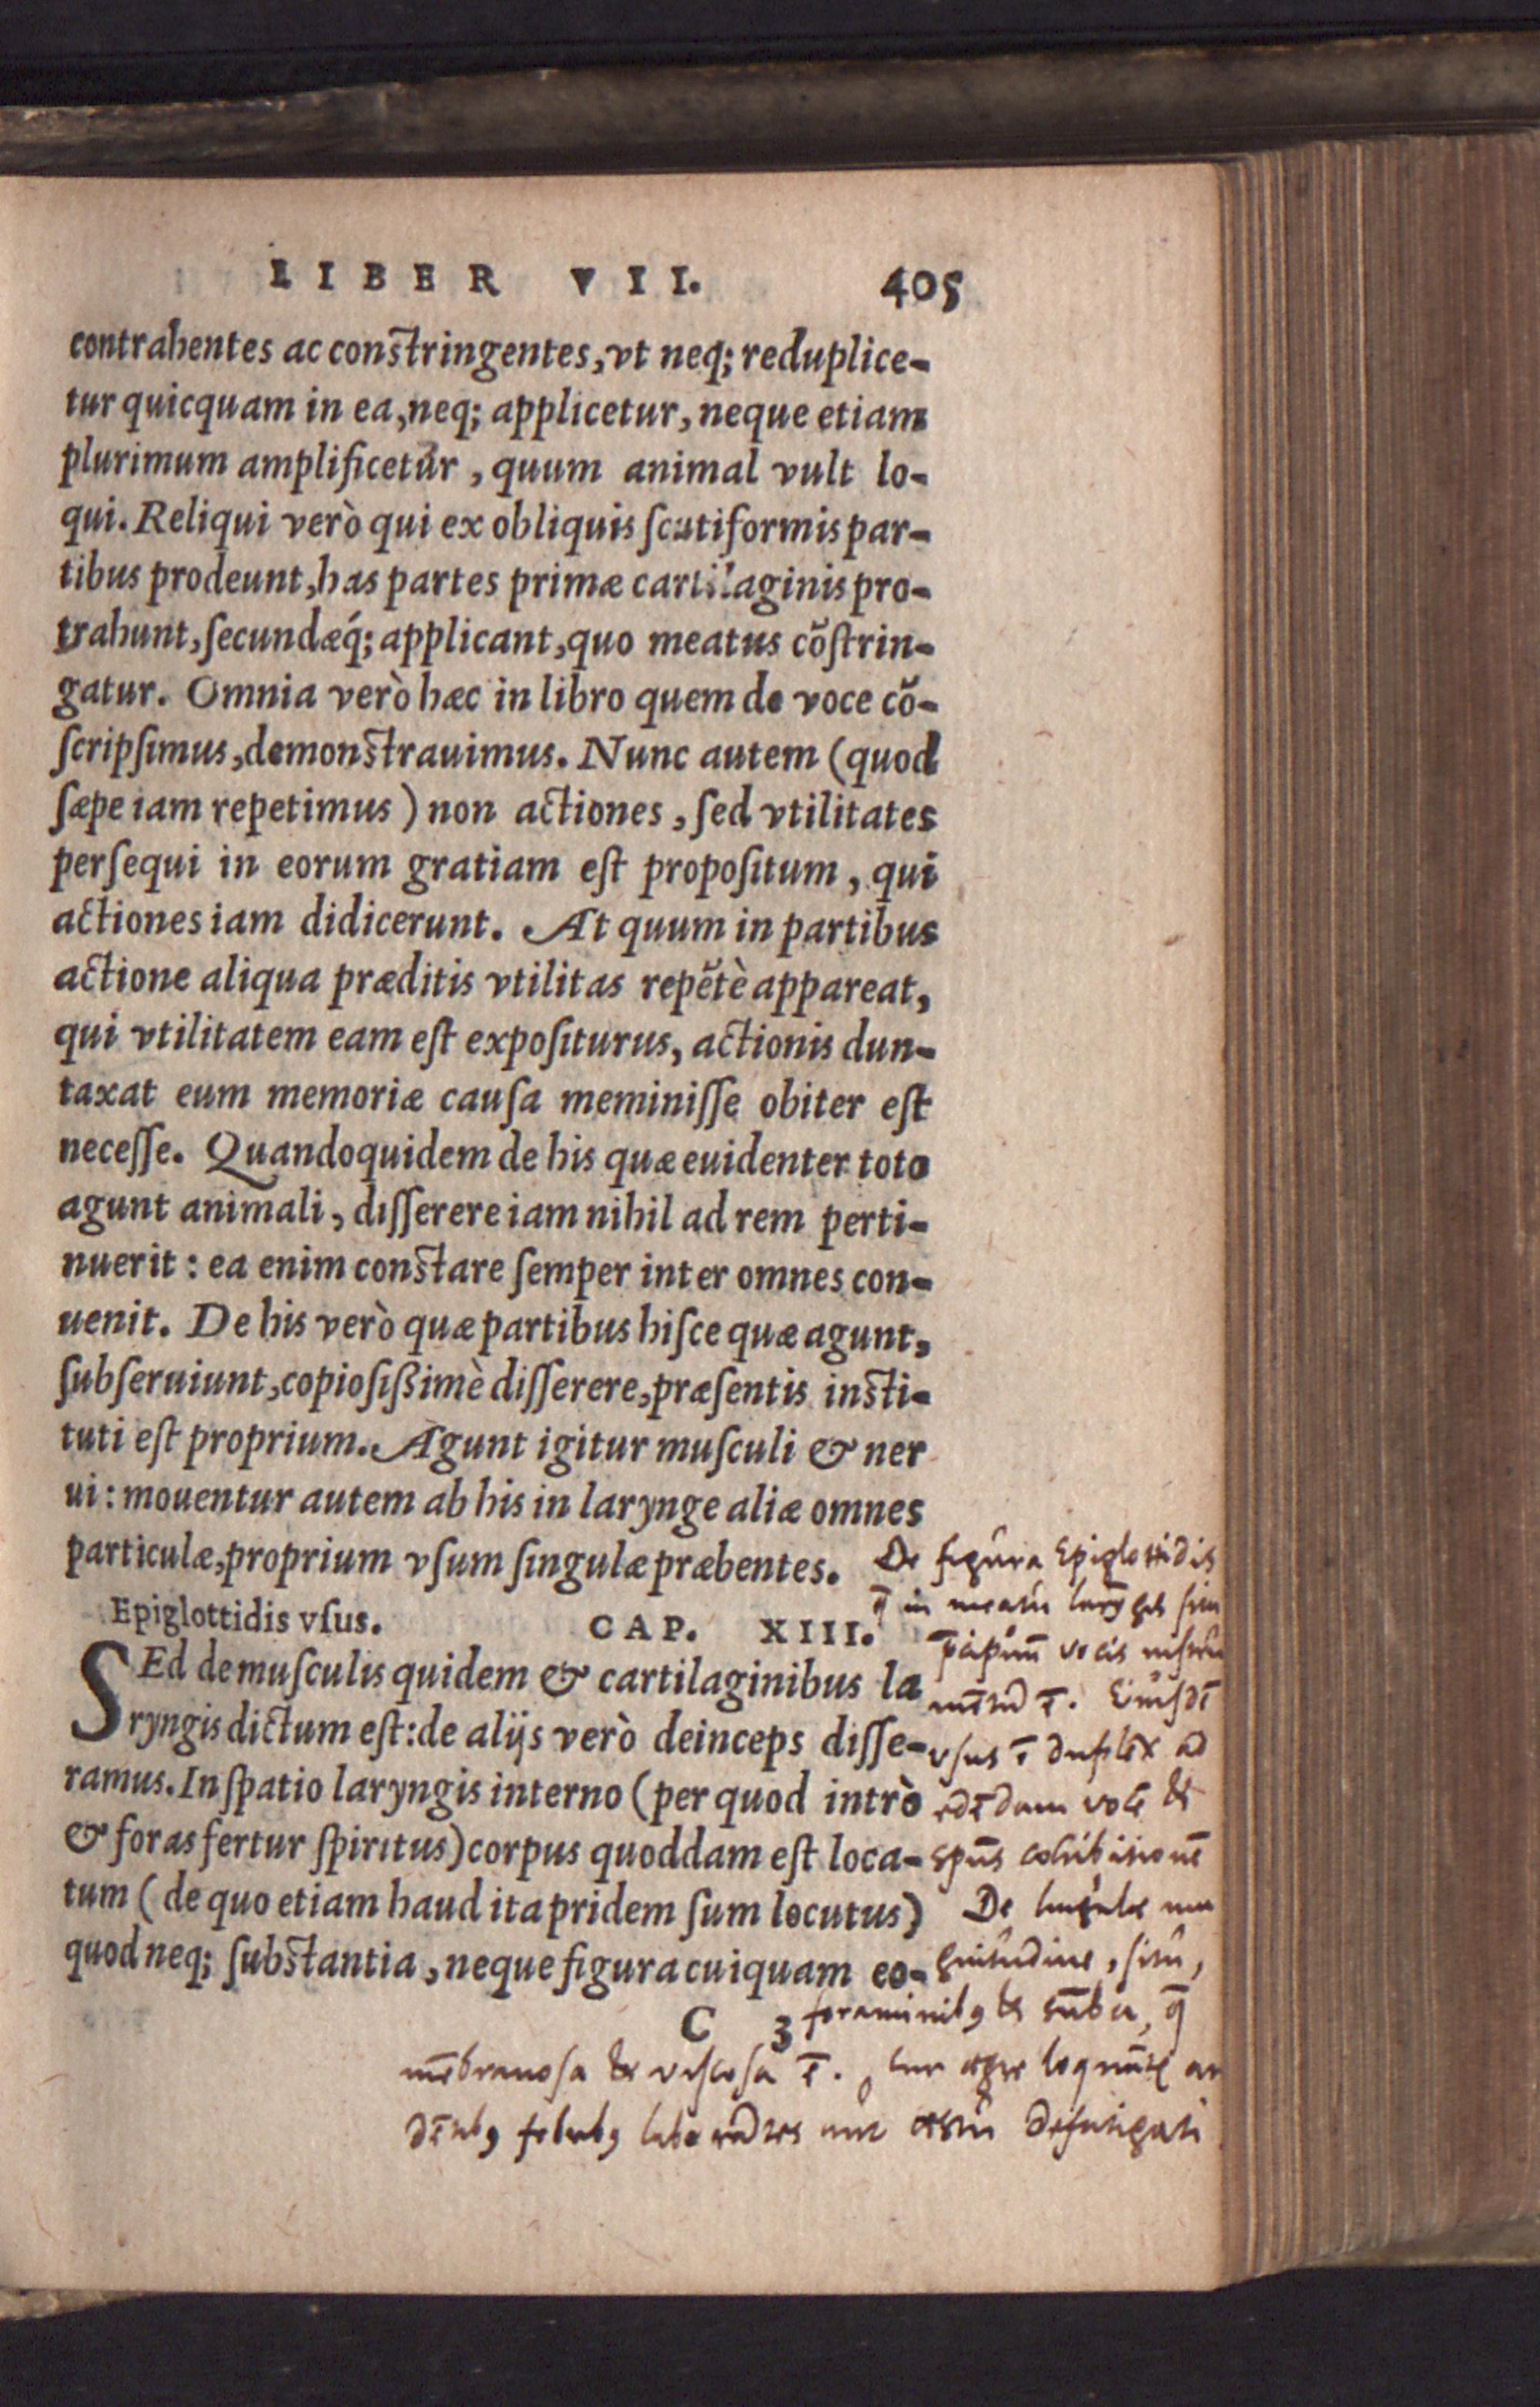 LIBER VII. 405
contrahentes ac constringentes, vt neq; reduplice-
tur quicquam in ea, neq; applicetur, neque etiam
plurimum amplificetur, quum animal vult lo-
qui. Reliqui verò qui ex obliquis ſcutiformis par-
tibus prodeunt, has partes primæ cartilaginis pro-
trahunt, ſecundæq́; applicant, quo meatus cõſtrin-
gatur. Omnia verò hæc in libro quem de voce cõ-
ſcripſimus, demonstrauimus. Nunc autem (quod
ſæpe iam repetimus) non actiones, ſed vtilitates
perſequi in eorum gratiam eſt propoſitum, qui
actiones iam didicerunt. At quum in partibus
actione aliqua præditis vtilitas repẽtè appareat,
qui vtilitatem eam eſt expoſiturus, actionis dun-
taxat eum memoriæ cauſa meminiſſe obiter eſt
neceſſe. Quandoquidem de his quæ euidenter toto
agunt animali, diſſerere iam nihil ad rem perti-
nuerit: ea enim constare ſemper inter omnes con-
uenit. De his verò quæ partibus hiſce quæ agunt,
ſubſeruiunt, copioſißimè diſſerere, præſentis insti-
tuti eſt proprium. Agunt igitur muſculi & ner
ui: mouentur autem ab his in larynge aliæ omnes
particulæ, proprium vſum ſingulæ præbentes.
Epiglottidis vſus. CAP. XIII.
SEd de muſculis quidem & cartilaginibus la
ryngis dictum eſt: de alijs verò deinceps diſſe-
ramus. In ſpatio laryngis interno (per quod intrò
& foras fertur ſpiritus) corpus quoddam eſt loca-
tum (de quo etiam haud ita pridem ſum locutus)
quod neq; ſubstantia, neque figura cuiquam eo-
C 3
De figura Epiglottidis
in meatu
vocis
vſus ē duplex ad
edēdam vocē &
spūs cohibitionē
De
, situ,
foraminibꝯ &
mēbranosa & viscosa ē.
defatigati